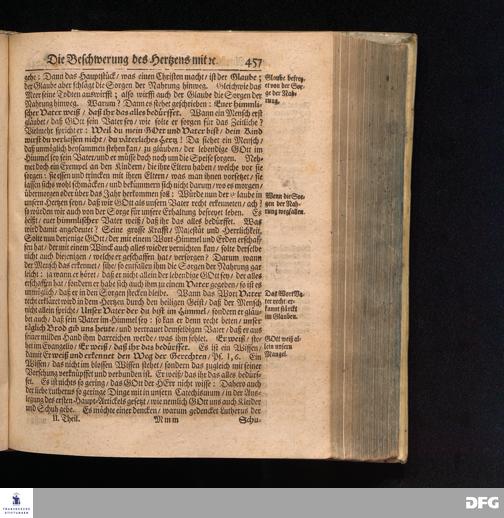 Die Beschwerung des Hertzens mit ꝛc. 457
gehe: Dann das Hauptstück/ was einen Christen macht/ ist der Glaube;
der Glaube aber schlägt die Sorgen der Nahrung hinweg. Gleichwie das
Meer seine Todten auswirfft; also wirfft auch der Glaube die Sorgen der
Nahrung hinweg. Warum? Dann es stehet geschrieben: Euer himmli-
scher Vater weiß/ daß ihr das alles bedürffet. Wann ein Mensch erst
gläubet/ daß GOtt sein Vater sey/ wie solte er sorgen für das Zeitliche?
Vielmehr spricht er: Weil du mein GOtt und Vater bist/ dein Kind
wirst du verlassen nicht/ du väterliches Hertz! Da siehet ein Mensch/
daß unmöglich beysammen stehen kan/ zu gläuben/ der lebendige GOtt im
Himmel sey sein Vater/ und er müsse doch noch um die Speise sorgen. Neh-
met doch ein Exempel an den Kindern/ die ihre Eltern haben/ welche vor sie
sorgen: sie essen und trincken mit ihren Eltern/ was man ihnen vorsetzet/ sie
lassen sichs wohl schmäcken/ und bekümmern sich nicht darum/ wo es morgen/
übermorgen oder über das Jahr herkommen soll: Würde nun der Glaube in
unsern Hertzen seyn/ daß wir GOtt als unsern Vater recht erkenneten/ ach?
so würden wir auch von der Sorge für unsere Erhaltung befreyet leben. Es
heißt/ euer himmlischer Vater weiß/ daß ihr das alles bedürffet. Was
wird damit angedeutet? Seine grosse Krafft/ Majestät und Herrlichkeit.
Solte nun derjenige GOtt/ der mit einem Wort Himmel und Erden erschaf-
fen hat/ der mit einem Winck auch alles wieder vernichten kan/ solte derselbe
nicht auch diejenigen/ welche er geschaffen hat/ versorgen? Darum wann
der Mensch das erkennet/ sihe/ so entfallen ihm die Sorgen der Nahrung gar
leicht: ja wann er höret/ daß er nicht allein der lebendige GOtt sey/ der alles
erschaffen hat/ sondern er habe sich auch ihm zu einem Vater gegeben/ so ist es
unmüglich/ daß er in den Sorgen stecken bleibe. Wann das Wort Vater
recht erkläret wird in dem Hertzen durch den heiligen Geist/ daß der Mensch
nicht allein spricht/ Unser Vater der du bist im Himmel/ sondern er gläu-
bet auch/ daß sein Vater im Himmel sey: so kan er denn recht beten/ unser
täglich Brod gib uns heute/ und vertrauet demselbigen Vater/ daß er aus
seiner milden Hand ihm darreichen werde/ was ihm fehlet. Er weiß/ ste-
het im Evangelio/ Er weiß/ daß ihr das bedürffet. Es ist ein Wissen/
damit Er weiß und erkennet den Weg der Gerechten/ Ps. 1, 6. Ein
Wissen/ das nicht im blossen Wissen stehet/ sondern das zugleich mit seiner
Versorgung verknüpffet und verbunden ist. Er weiß/ das ihr das alles bedürf-
fet. Es ist nichts so gering/ das GOtt der HErr nicht wisse: Dahero auch
der liebe Lutherus so geringe Dinge mit in unsern Catechismum/ in der Aus-
legung des ersten Haupt-Artickels gesetzt/ wie nemlich GOtt uns auch Kleider
und Schuh gebe. Es möchte einer dencken/ warum gedencket Lutherus der
II. Theil. M m m Schu-
Glaube befrey-
et von der Sor-
ge der Nah-
rung.
Wenn die Sor-
gen der Nah-
rung wegfallen.
Das Wort Va-
ter recht er-
kannt stärckt
im Glauben.
GOtt weiß al-
lein unsern
Mangel.
FRANCKESCHE
STIFTUNGEN
DFG